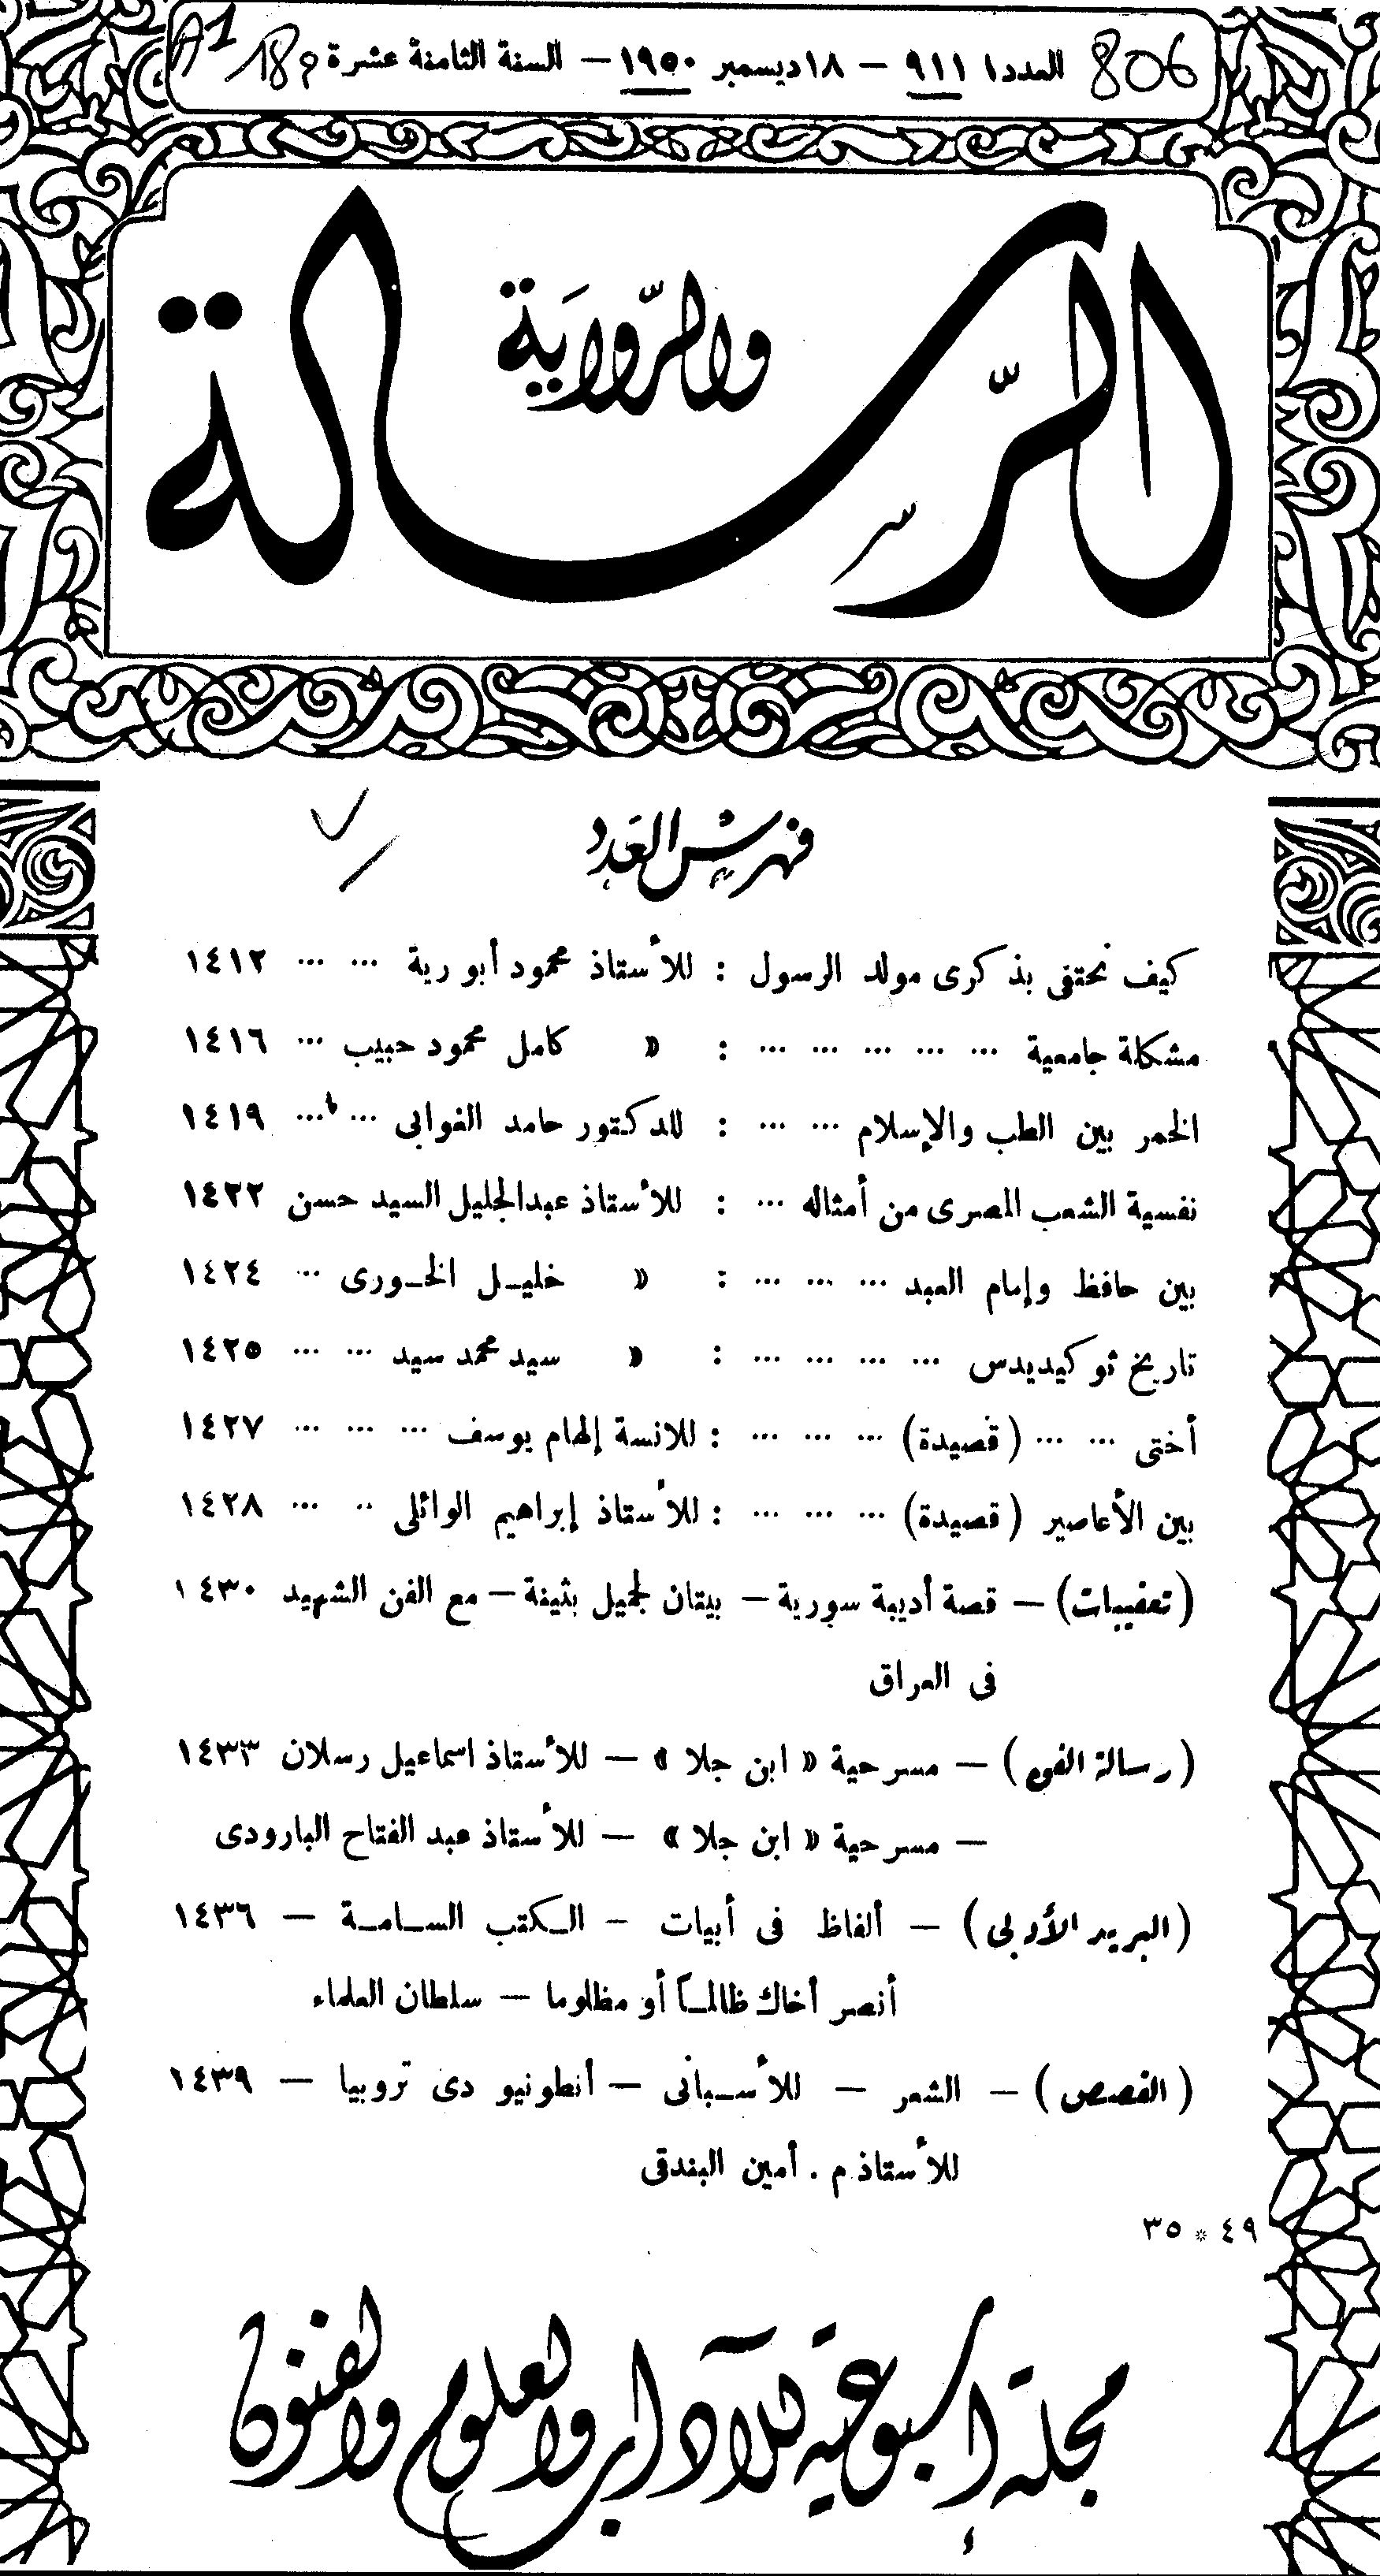 806 العدد ٩١١ — ١٨ ديسمبر ١٩٥٠ — السنة الثامنة عشرة
الرسالة
والرواية
فهرس العدد
كيف نحتفى بذكرى مولد الرسول : للأستاذ محمود أبو رية ... ... ١٤١٢
مشكلة جامعية ... ... ... ... ... : » كامل محمود حبيب ... ١٤١٦
الخمر بين الطب والإسلام ... ... : للدكتور حامد الغوابى ... ... ١٤١٩
نفسية الشعب المصرى من أمثاله ... : للأستاذ عبدالجليل السيد حسن ١٤٢٢
بين حافظ وإمام العبد ... ... ... : » خليـل الخـورى ... ١٤٢٤
تاريخ ثوكيديدس ... ... ... ... : » سيد محمد سيد ... ... ١٤٢٥
أختى ... ... (قصيدة) ... ... ... : للانسة إلهام يوسف ... ... ... ١٤٢٧
بين الأعاصير (قصيدة) ... ... ... : للأستاذ إبراهيم الوائلى .. ... ١٤٢٨
(تعقيبات) — قصة أديبة سورية — بيتان لجميل بثينة — مع الفن الشهيد ١٤٣٠
فى العراق
(رسالة الفن) — مسرحية « ابن جلا » — للأستاذ اسماعيل رسلان ١٤٣٣
— مسرحية « ابن جلا » — للأستاذ عبد الفتاح البارودى
(البريد الأدبى) — ألفاظ فى أبيات — الـكتب السـامـة — ١٤٣٦
أنصر أخاك ظالمـاً أو مظلوما — سلطان العلماء
(القصص) — الشعر — للأسـبانى — أنطونيو دى تروبيا — ١٤٣٩
للأستاذ م . أمين البندقى
٤٩ * ٣٥
مجلة أسبوعية للآداب والعلوم والفنون